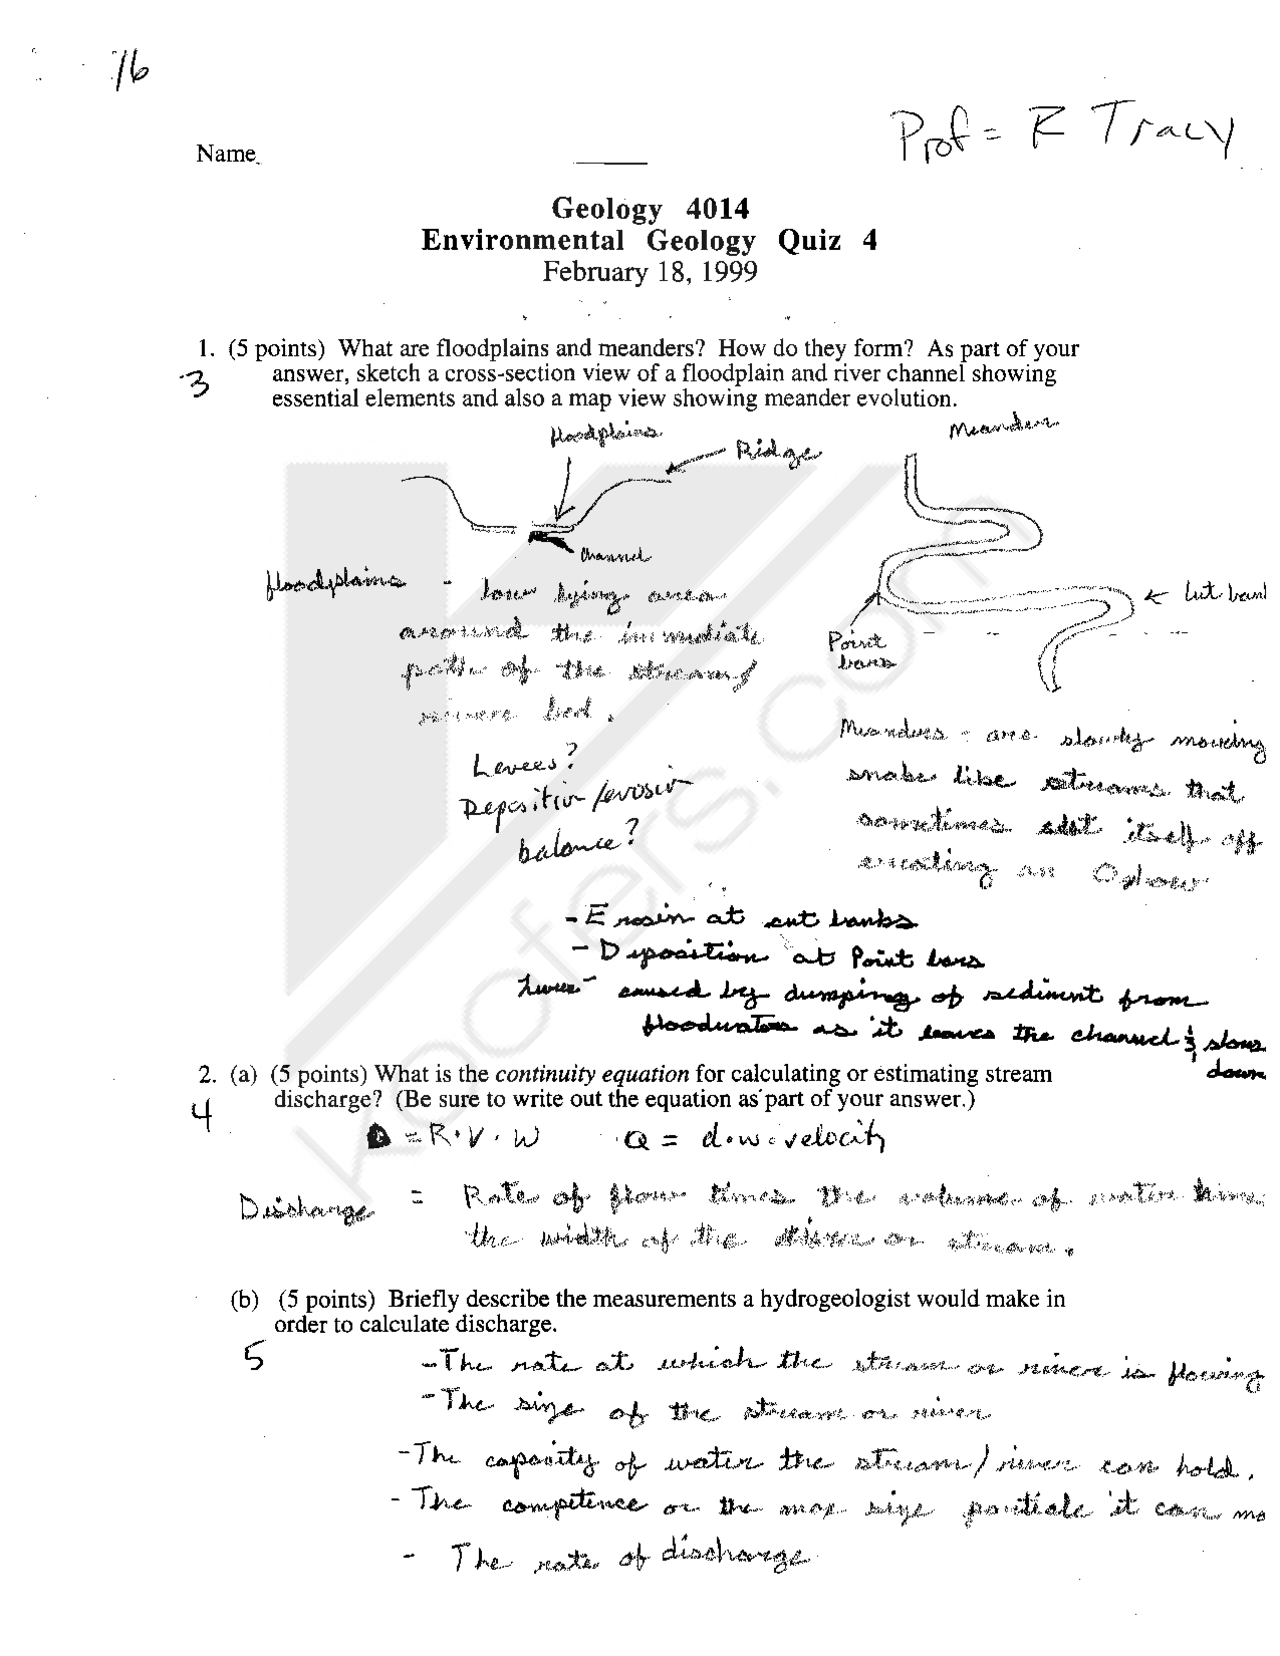 16
Prof = R Tracy
Name
Geology 4014
Environmental Geology Quiz 4
February 18, 1999
1. (5 points) What are floodplains and meanders? How do they form? As part of your
3
answer, sketch a cross-section view of a floodplain and river channel showing
essential elements and also a map view showing meander evolution.
floodplains
Meander
Ridge
Channel
floodplains - low lying area
around the immediate
path of the stream/
rivere bed.
Cut bank
Point
bars
Levees?
Deposition/erosion
balance?
Meanders - are slowly moveing
snake like streams that
sometimes itself off
creating an Oxbow
- Erosin at cut banks
- Deposition at Point bars
caused by dumping of sediment from
floodwaters as it leaves the channel & slows
down
2. (a) (5 points) What is the continuity equation for calculating or estimating stream
4
discharge? (Be sure to write out the equation as part of your answer.)
= R·V·W Q = d·w·velocity
Discharge = Rate of flow times the volume of water times
the width of the river or stream.
(b) (5 points) Briefly describe the measurements a hydrogeologist would make in
order to calculate discharge.
5
- The rate at which the stream or river is flowing
- The size of the stream or river
- The capacity of water the stream/river can hold.
- The competence or the max size particle it can mo
- The rate of discharge
koofers.com